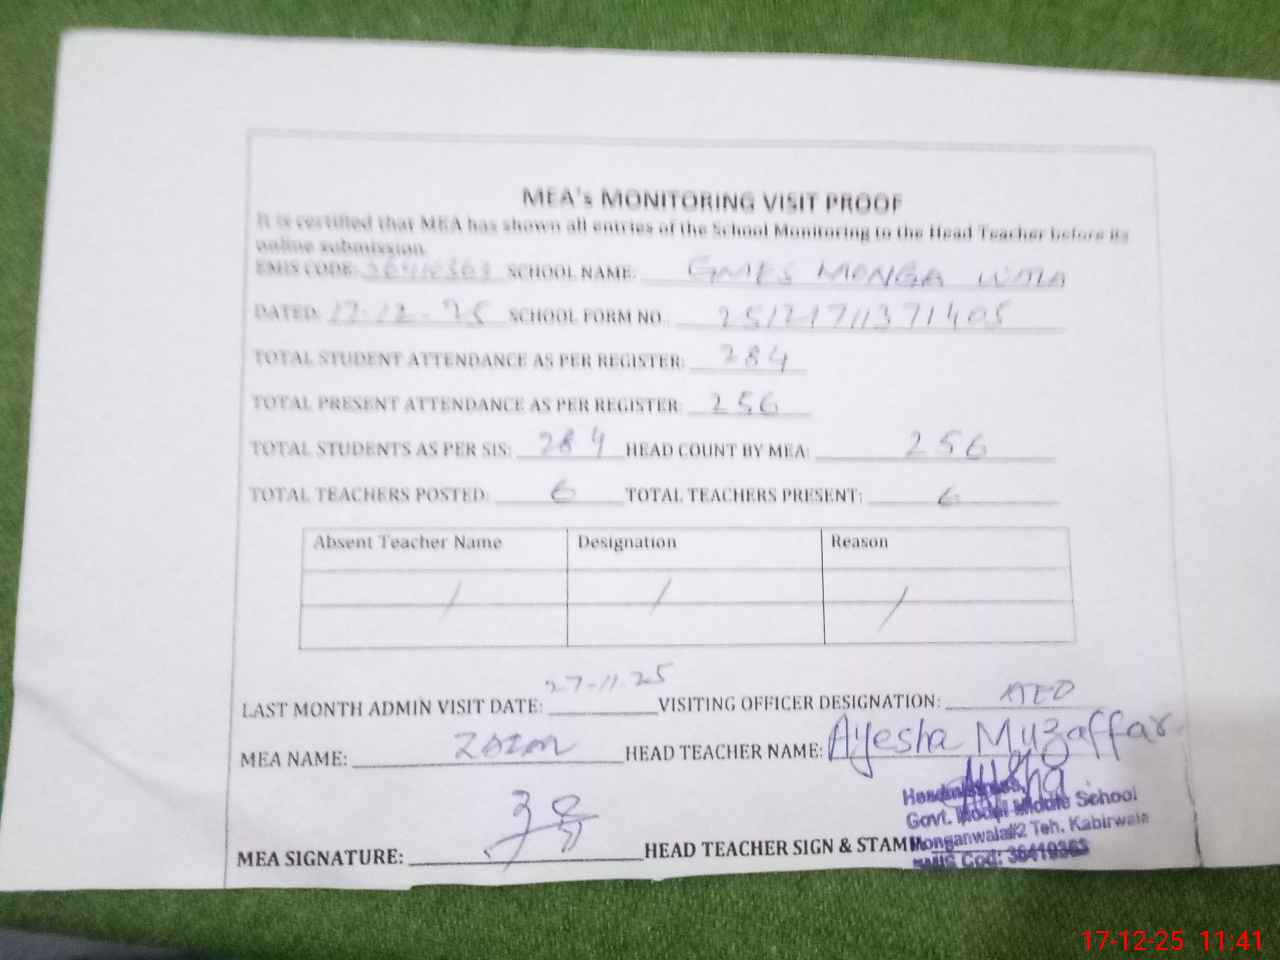 MEA's MONITORING VISIT PROOF
It is certified that MEA has shown all entries of the School Monitoring to the Head Teacher before its
online submission.
EMIS CODE: 36410363 SCHOOL NAME: GMES MONGA WALA
DATED: 17-12-25 SCHOOL FORM NO. 251217111371405
TOTAL STUDENT ATTENDANCE AS PER REGISTER: 284
TOTAL PRESENT ATTENDANCE AS PER REGISTER: 256
TOTAL STUDENTS AS PER SIS: 284 HEAD COUNT BY MEA: 256
TOTAL TEACHERS POSTED: 6 TOTAL TEACHERS PRESENT: 6
Absent Teacher Name Designation Reason
/ / /
LAST MONTH ADMIN VISIT DATE: 27-11-25 VISITING OFFICER DESIGNATION: AEO
MEA NAME: HEAD TEACHER NAME: Ayesha Muzaffar
Headmistress,
Govt. Model Middle School
Monganwala Teh. Kabirwala
MEA SIGNATURE: HEAD TEACHER SIGN & STAMP
EMIS Cod: 36410363
17-12-25 11:41